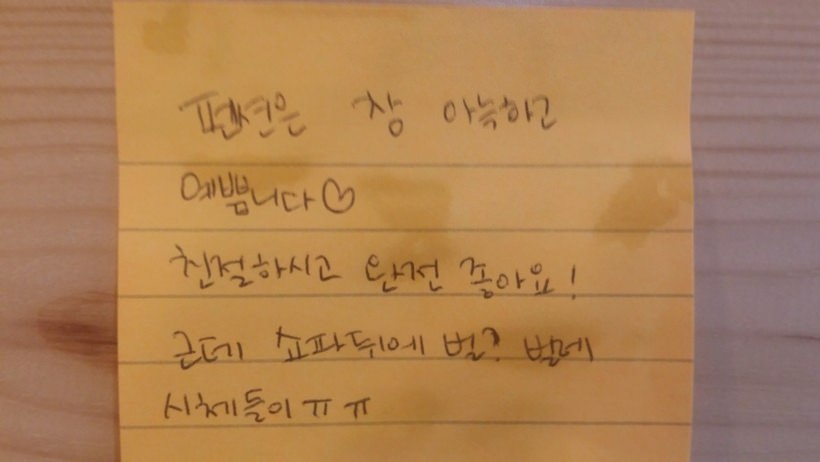 펜션은 참 아늑하고
예쁩니다♡
친절하시고 완전 좋아요!
근데 쇼파뒤에 벌? 벌레
시체들이ㅠㅠ